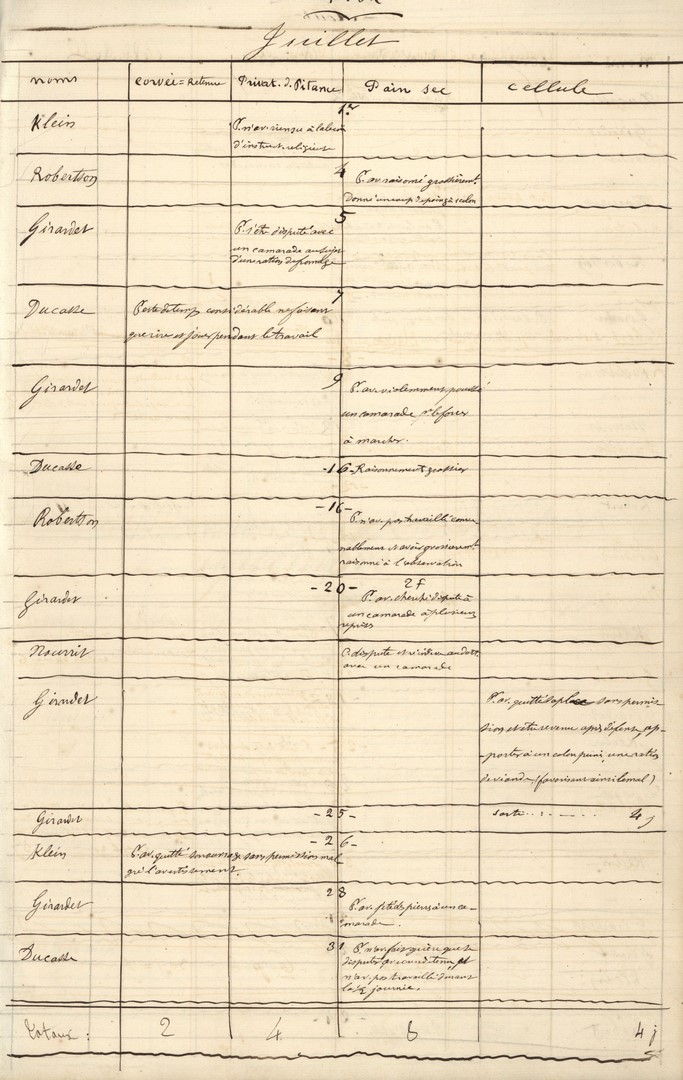 Juillet
noms corvée=Retenue Privat. d. Pitance Pain sec cellule
1er
Klein P. n'av. rien su à la leçon
d'instruct. religieuse
4
Robertson P. av. raisonné grossièremt.
donné un coup de poing à colon
5
Girardet P. s'être disputé avec
un camarade au sujet
d'une ration de fromage
7
Ducasse Perte de temps considérable ne faisant
que rire et jouer pendant le travail
9
Girardet P. av. violemment poussé
un camarade pr. le forcer
à marcher.
Ducasse -16- Raisonnement grossier
-16-
Robertson P. n'av. pas travaillé conve
nablement et avoir grossièremt.
raisonné à l'observation
-20- 2f
Girardet P. av. cherché dispute à
un camarade à plusieurs
reprises
Nourrit dispute et
avec un camarade
Girardet P. av. quitté sa place sans permis
sion et être revenu après défense, ap-
-porter à un colon puni, une ration
de viande (favoriser ainsi le mal)
Girardet -25- sorti . . - . - - - 4 j
-26-
Klein P. av. quitté son ouvrage sans permission mal-
gré l'avertissement.
28
Girardet P. av. jeté des pierres à un ca-
marade.
31
Ducasse P. n'av. fait guère que se
disputer et
n'av. pas travaillé durant
la ½ journée.
Totaux : 2 4 6 4 j